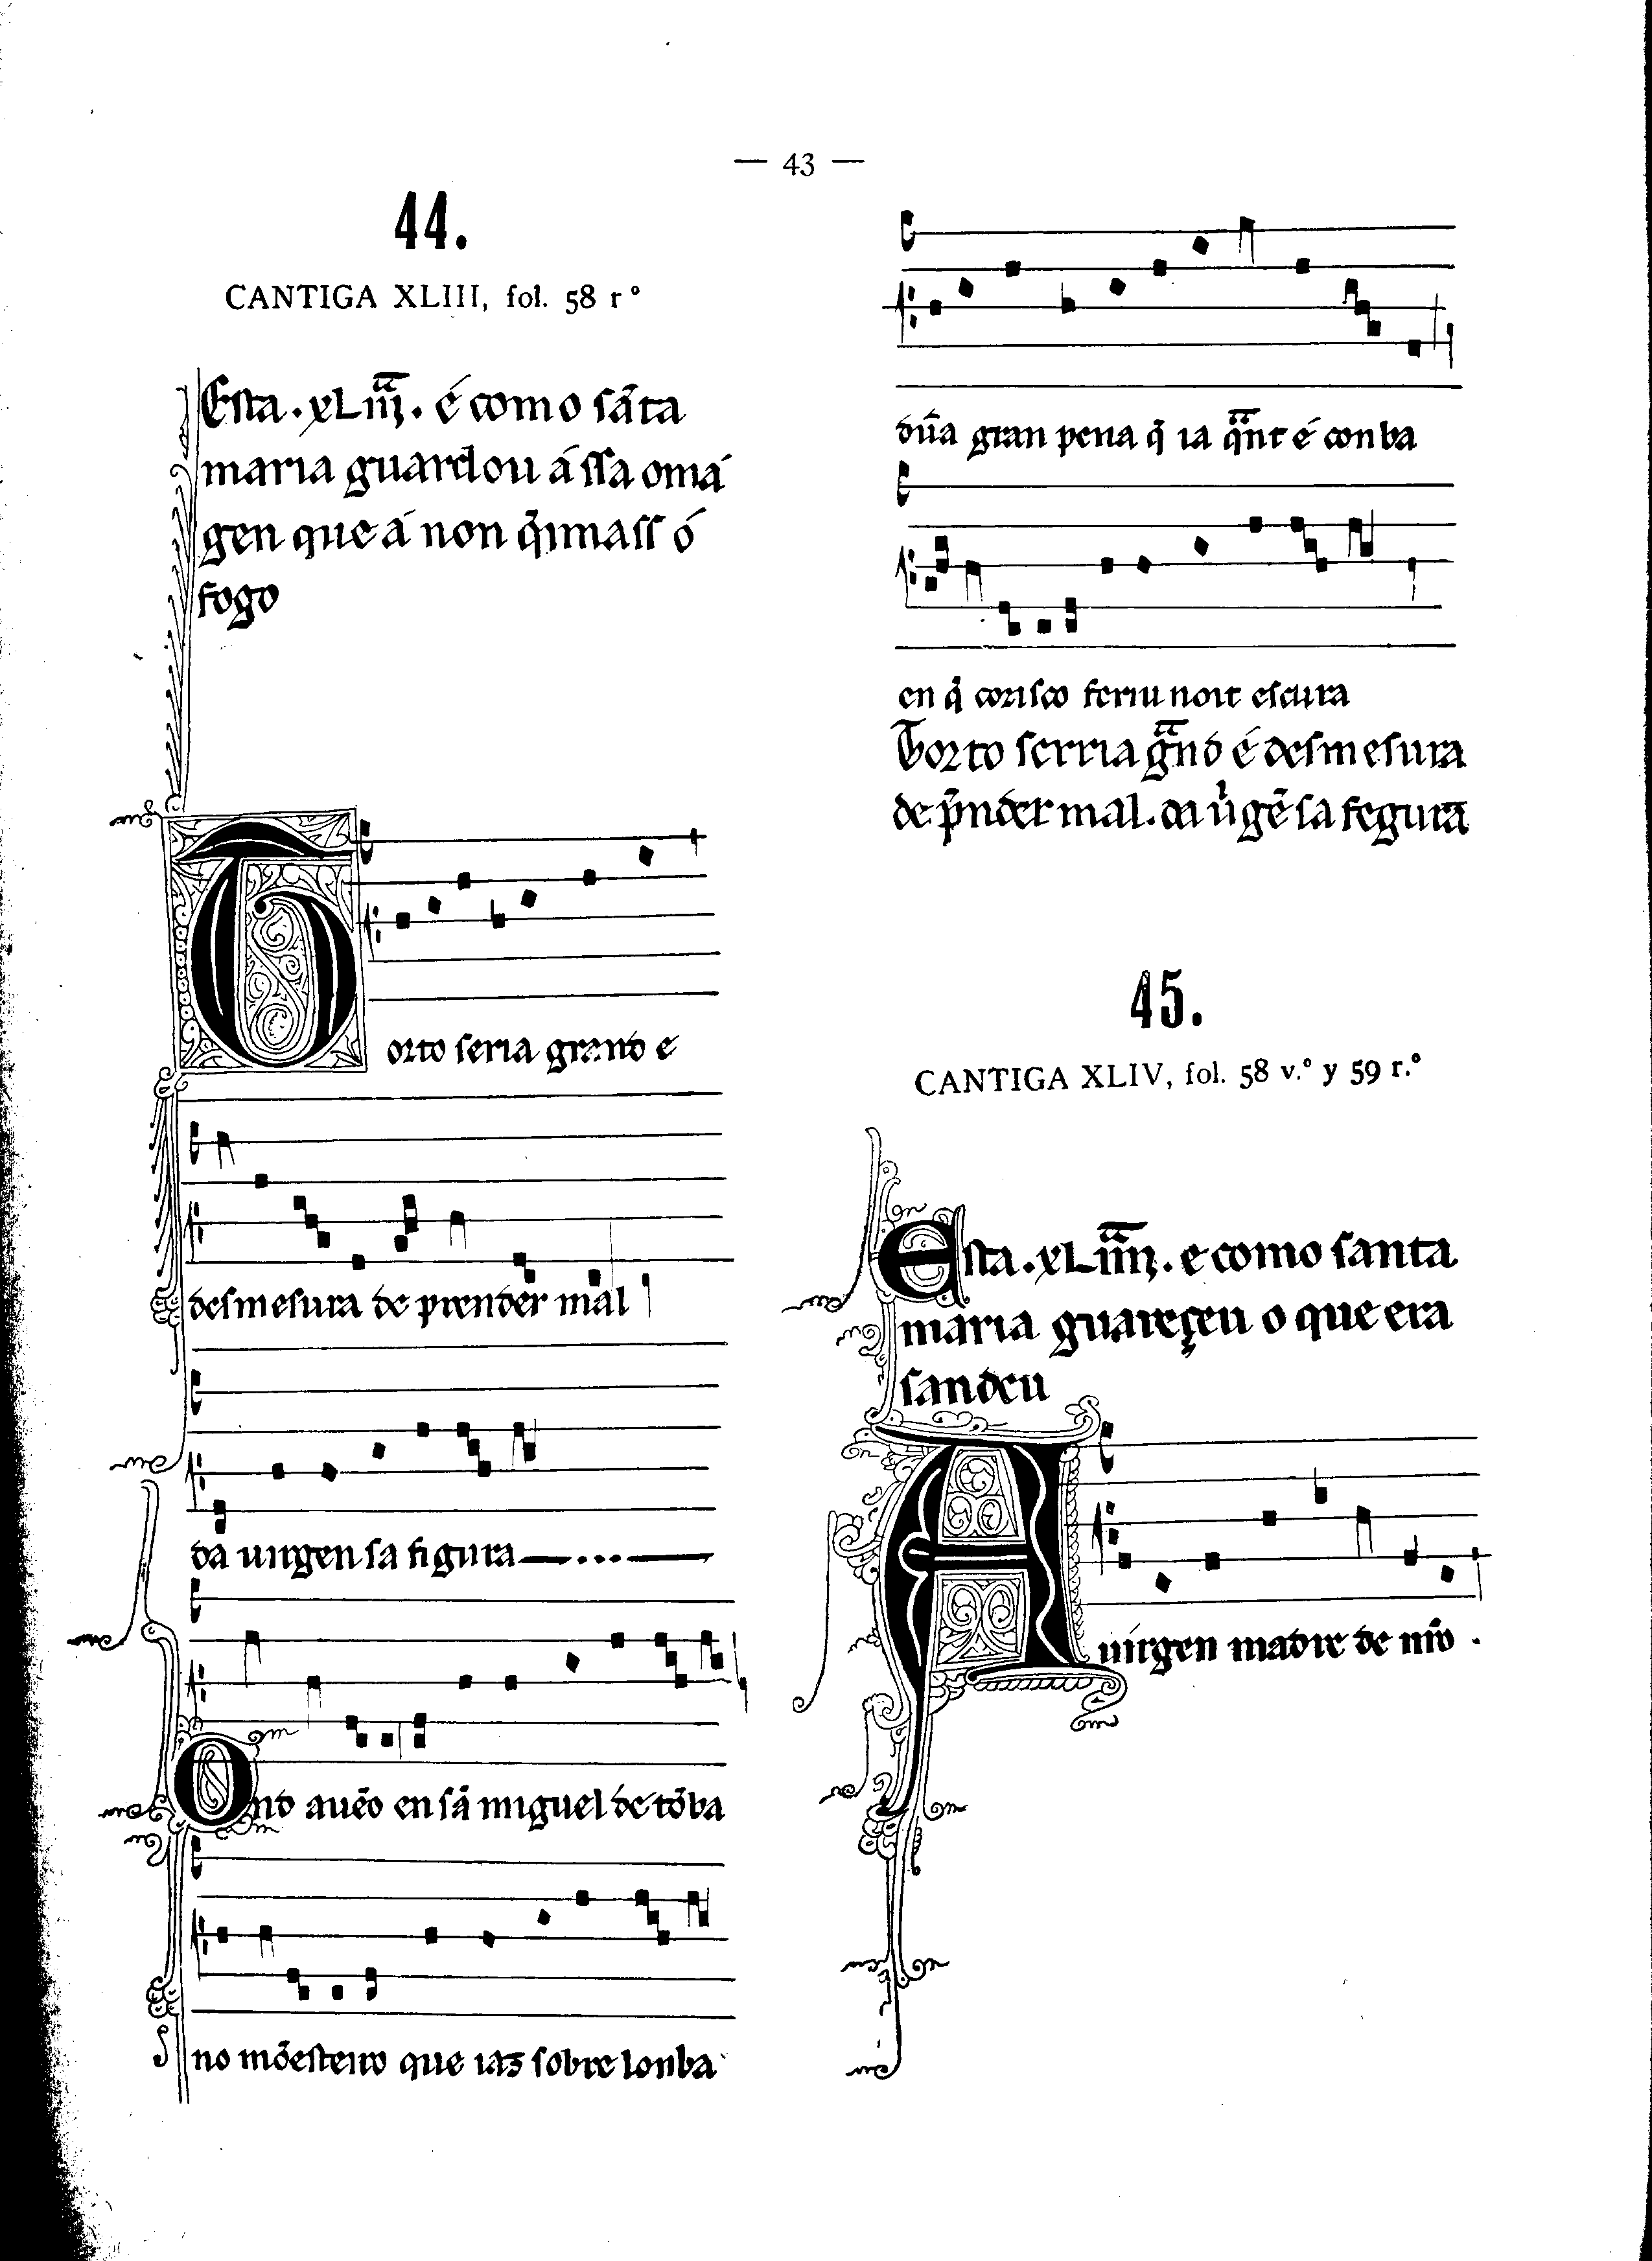 — 43 —
44.
CANTIGA XLIII, fol. 58 r º
Esta . xLiiij̄. é como sãta
maria guardou á ssa omá
gen que á non q̃imass ó
fogo
Torto seria grand e
desmesura de prender mal
da uirgen sa figura
Ond auẽo en sã miguel de tõba
no mõesteiro que iaz sobre lonba
dũa gran pena q̃ ia q̃nt é conba
en q̃ corisco feriu noit escura
Torto serria g̃nd é desmesura
de p̃nder mal. da ũgẽ sa fegura
45.
CANTIGA XLIV, fol. 58 v.º y 59 r.º
Esta . xLiiij̄. e como santa
maria guareçeu o que era
sandeu
A uirgen madre de nr̃o .